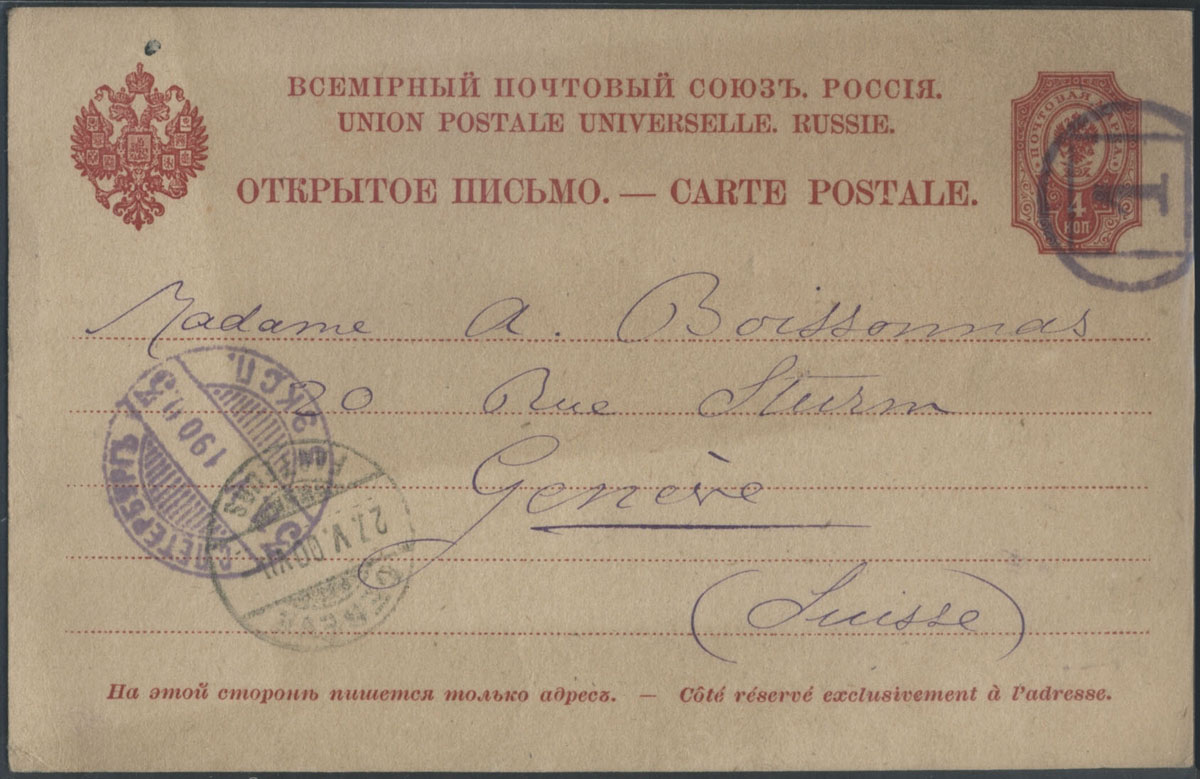 ВСЕМІРНЫЙ ПОЧТОВЫЙ СОЮЗЪ. РОССІЯ.
UNION POSTALE UNIVERSELLE. RUSSIE.
ОТКРЫТОЕ ПИСЬМО. — CARTE POSTALE.
ПОЧТОВАЯ МАРКА
4
КОП
T
Madame A. Boissonnas
20 Rue Sturm
Genève
(Suisse)
С. ПЕТЕРБУРГЪ
ЭКСП.
190
3
27.V.00.VII
GENÈVE
На этой сторонѣ пишется только адресъ. — Côté réservé exclusivement à l'adresse.